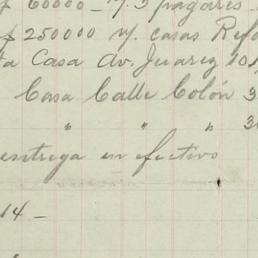 $ 60000 - n/. 3 pagarés
$ 250000 n/. casas Refo
ta Casa Av. Juarez 101
Casa Calle Colón 3
" " " 3
entrega en efectivo
14 -